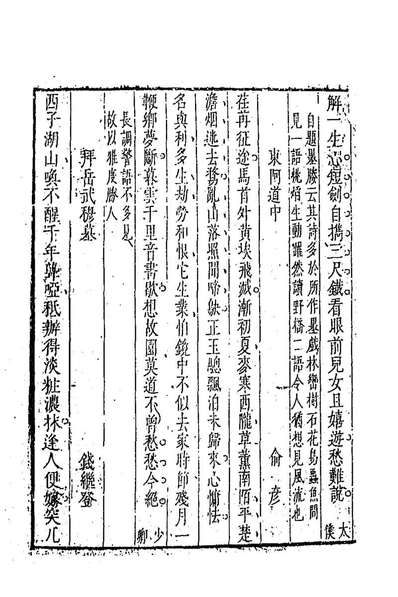 解一生心短劍自攜三尺鐵看眼前兒女且嬉遊愁難說
自題墨勝云其詩多於所作墨戲林巒樹石花鳥蟲魚間
見一語梳煩生動躍然讀野橋二語令人猶想見風流也
東阿道中 俞彥
荏再征途馬首外黃埃飛滅漸初夏麥寒西隴草薰南陌平楚
澹煙迷去鶩亂山落照聞啼鴂正玉驄飄泊未歸來心慵怯
名與利多生劫勞和恨它生業怕鏡中不似去家時節殘月一
鞭鄉夢斷暮雲千里音書歇想故園莫道不曾愁愁今絕
長調警語不多見
故以雅度勝人
拜岳武穆墓 錢繼登
西子湖山喚不醒千年聾啞秪辦得淡粧濃抹逢人便嫁突兀
大僕
少卿